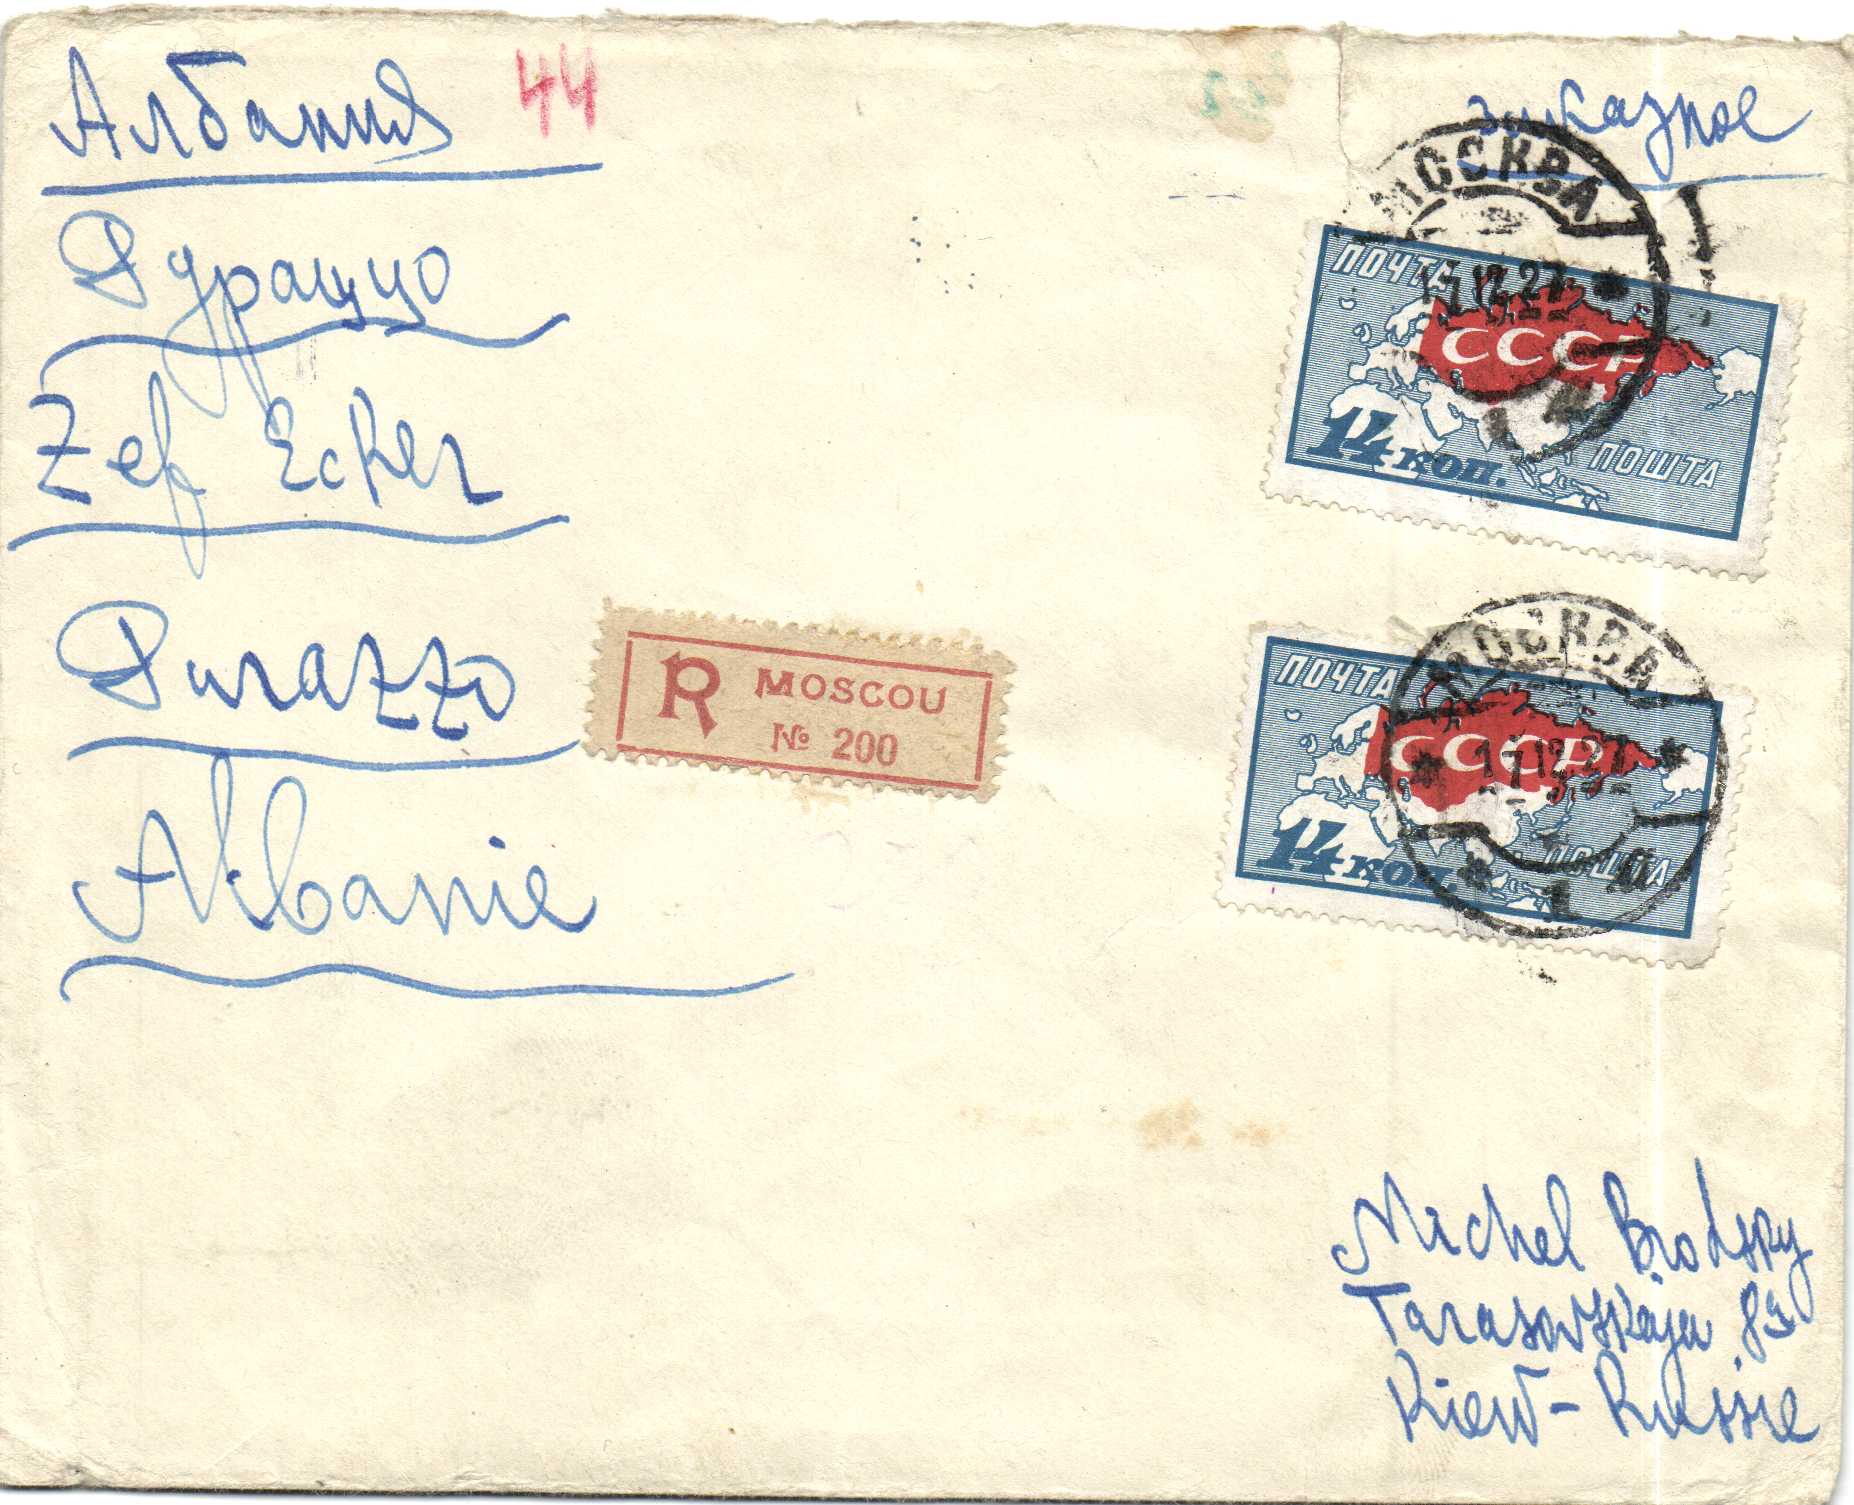 Албания 44
заказное
Дураццо
Zef Ecker
Durazzo
Albanie
R MOSCOU
№ 200
МОСКВА
17.12.27
ПОЧТА
СССР
14 КОП.
ПОШТА
МОСКВА
17.12.27
ПОЧТА
СССР
14 коп.
ПОШТА
Michel Brodsky
Tarasovskaja
Kiew - Russie